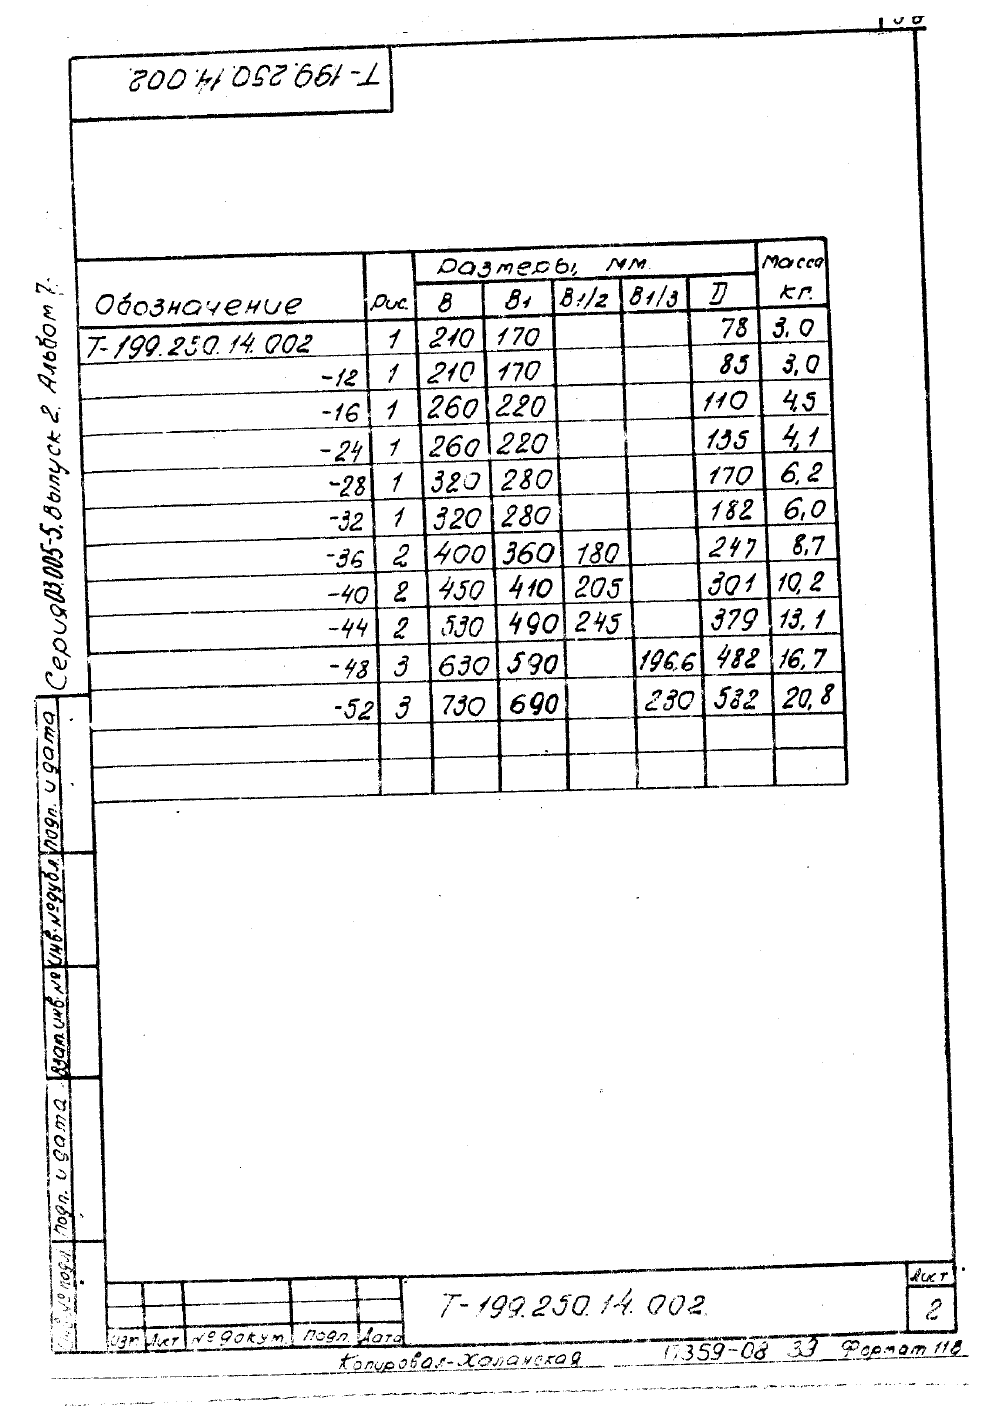 Т-199.250.14.002.
Серия 03.005-5. Выпуск 2. Альбом 7.
Обозначение Рис. Размеры, мм. Масса кг.
В В1 В1/2 В1/3 D
Т-199.250.14.002 1 210 170 78 3,0
-12 1 210 170 85 3,0
-16 1 260 220 110 4,5
-24 1 260 220 135 4,1
-28 1 320 280 170 6,2
-32 1 320 280 182 6,0
-36 2 400 360 180 247 8,7
-40 2 450 410 205 301 10,2
-44 2 530 490 245 379 13,1
-48 3 630 590 196.6 482 16,7
-52 3 730 690 230 582 20,8
Подп. и дата
Инв. № дубл.
Взам. инв. №
Подп. и дата
№ подл.
Изм Лист № докум. Подп. Дата
Т-199.250.14.002.
Лист
2
Копировал-Халанская
359-08 33 Формат 11В